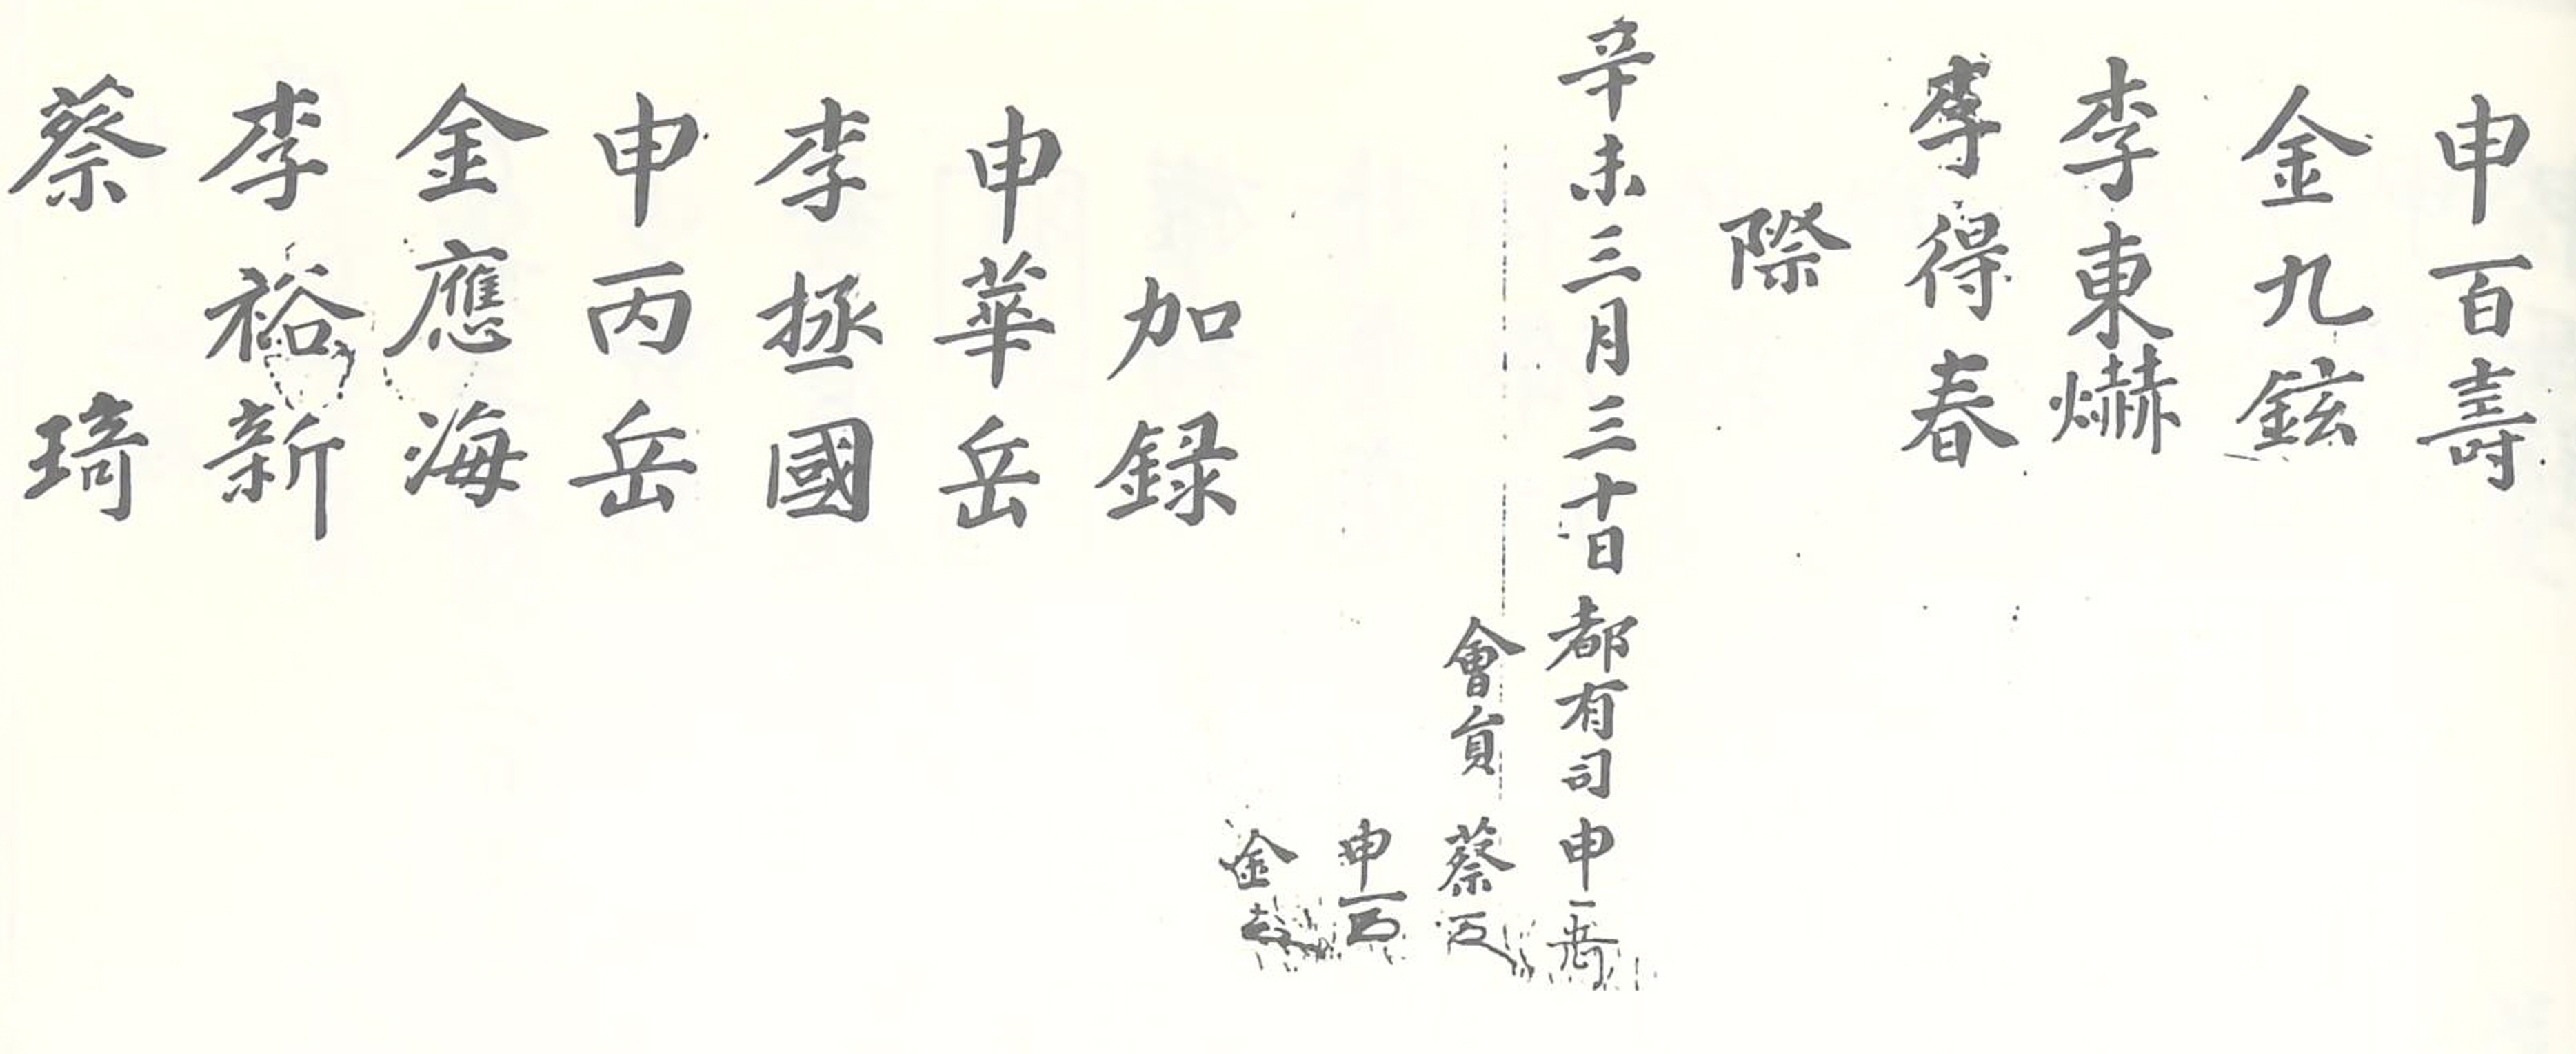 申百壽
金九鉉
李東爀
李得春
際
辛未三月三十日都有司申
會員蔡
申
金
加錄
申華岳
李拯國
申丙岳
金應海
李裕新
蔡琦